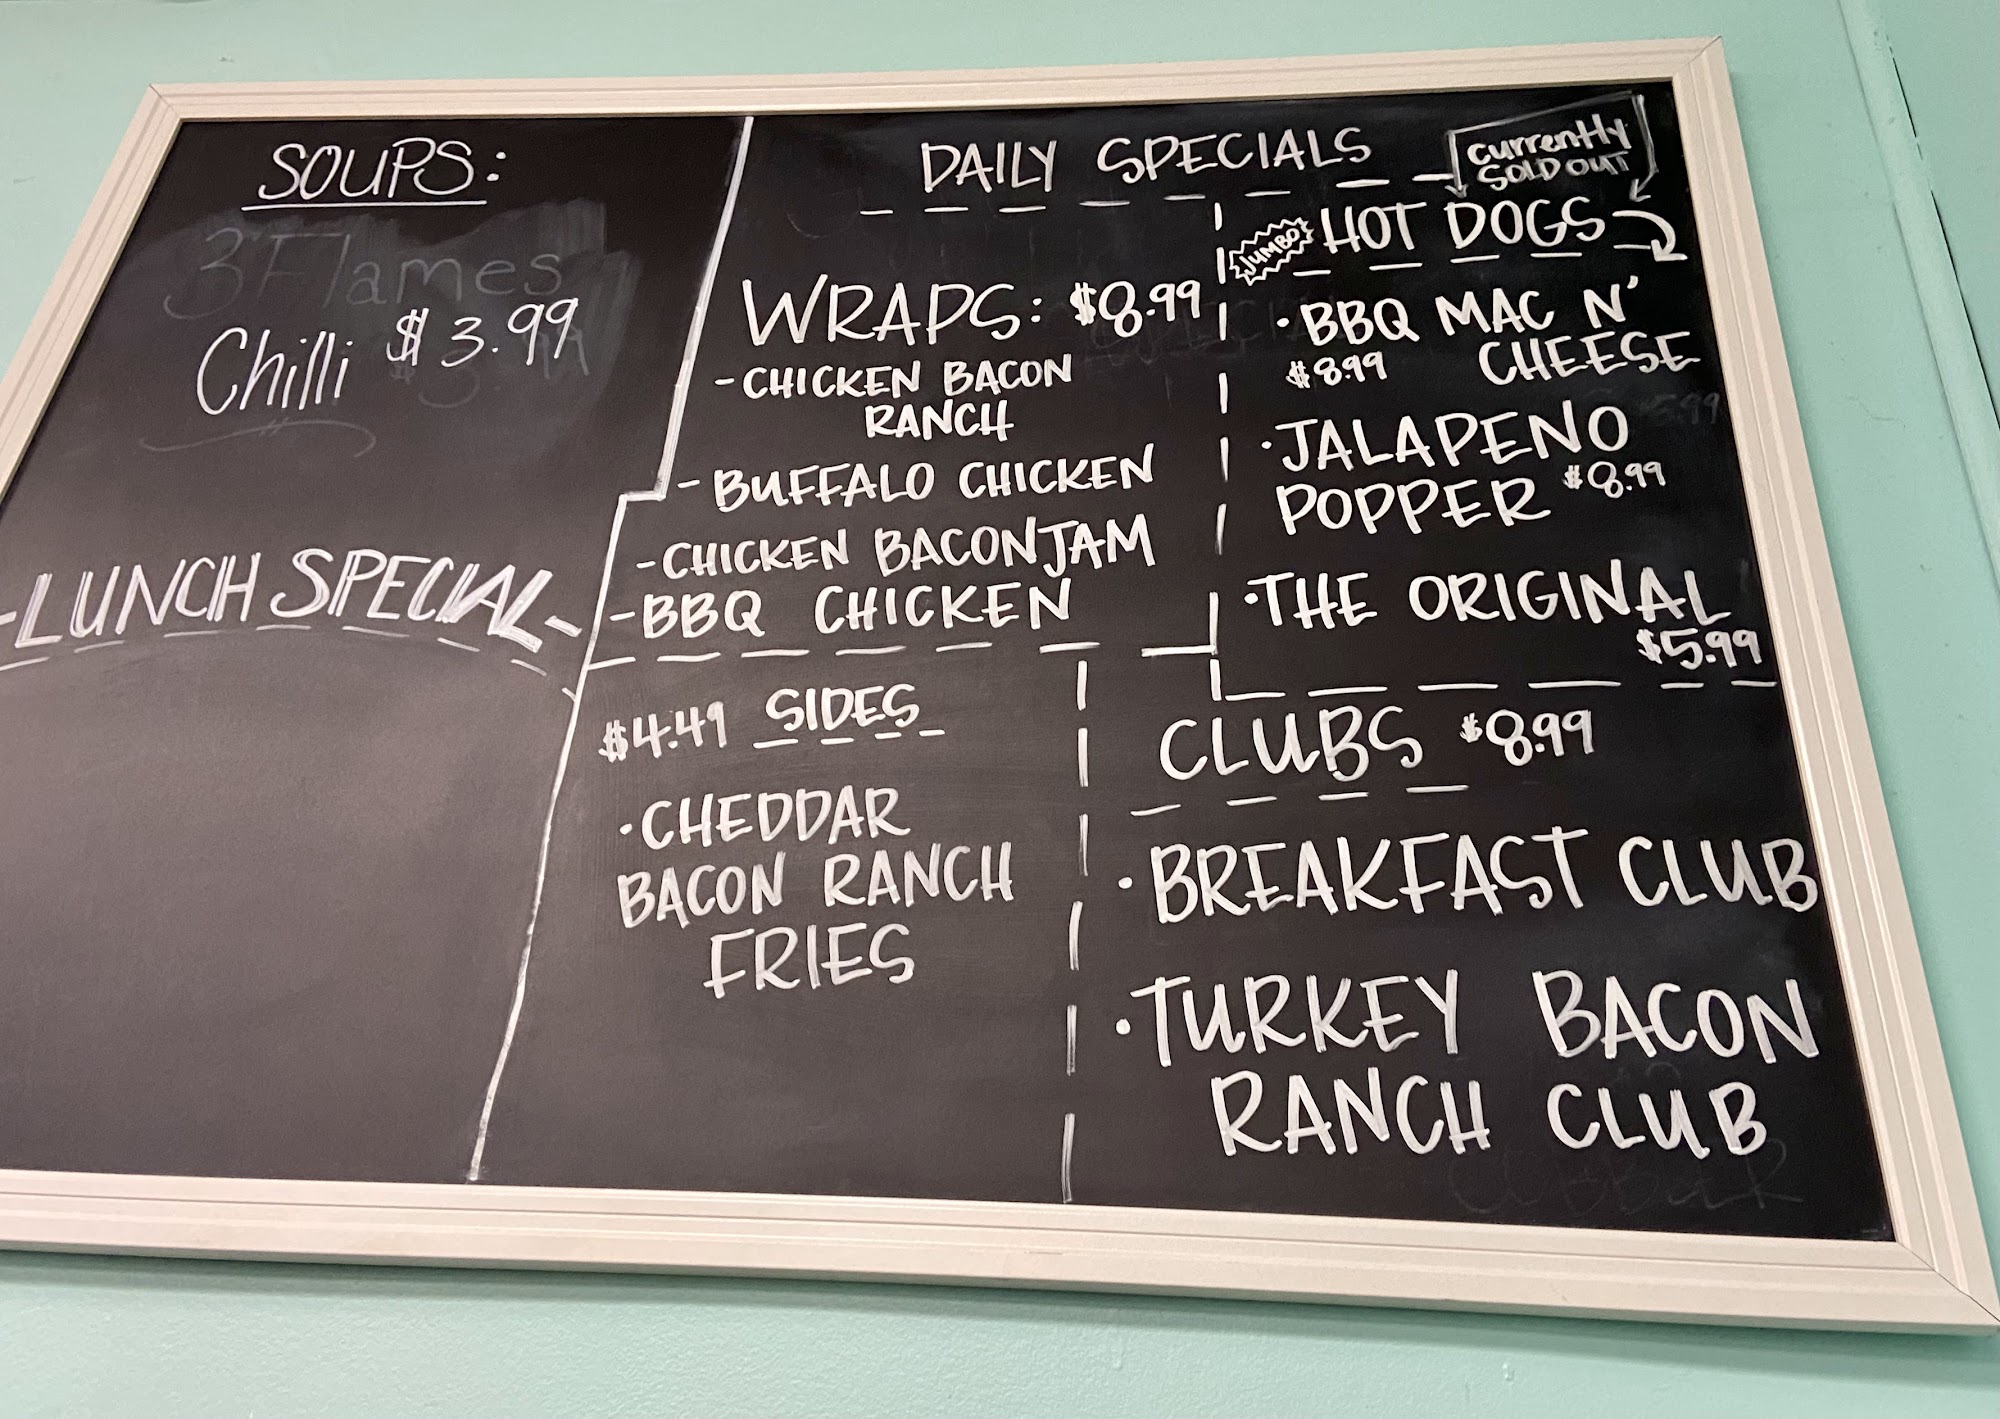 SOUPS:
3 Flames
Chilli $3.99
-LUNCH SPECIAL-
DAILY SPECIALS
WRAPS: $8.99
-CHICKEN BACON
RANCH
-BUFFALO CHICKEN
-CHICKEN BACON JAM
-BBQ CHICKEN
$4.49 SIDES
·CHEDDAR
BACON RANCH
FRIES
currently
SOLD OUT
JUMBO HOT DOGS
·BBQ MAC N'
$8.99 CHEESE
·JALAPENO
POPPER $8.99
·THE ORIGINAL
$5.99
CLUBS $8.99
·BREAKFAST CLUB
·TURKEY BACON
RANCH CLUB